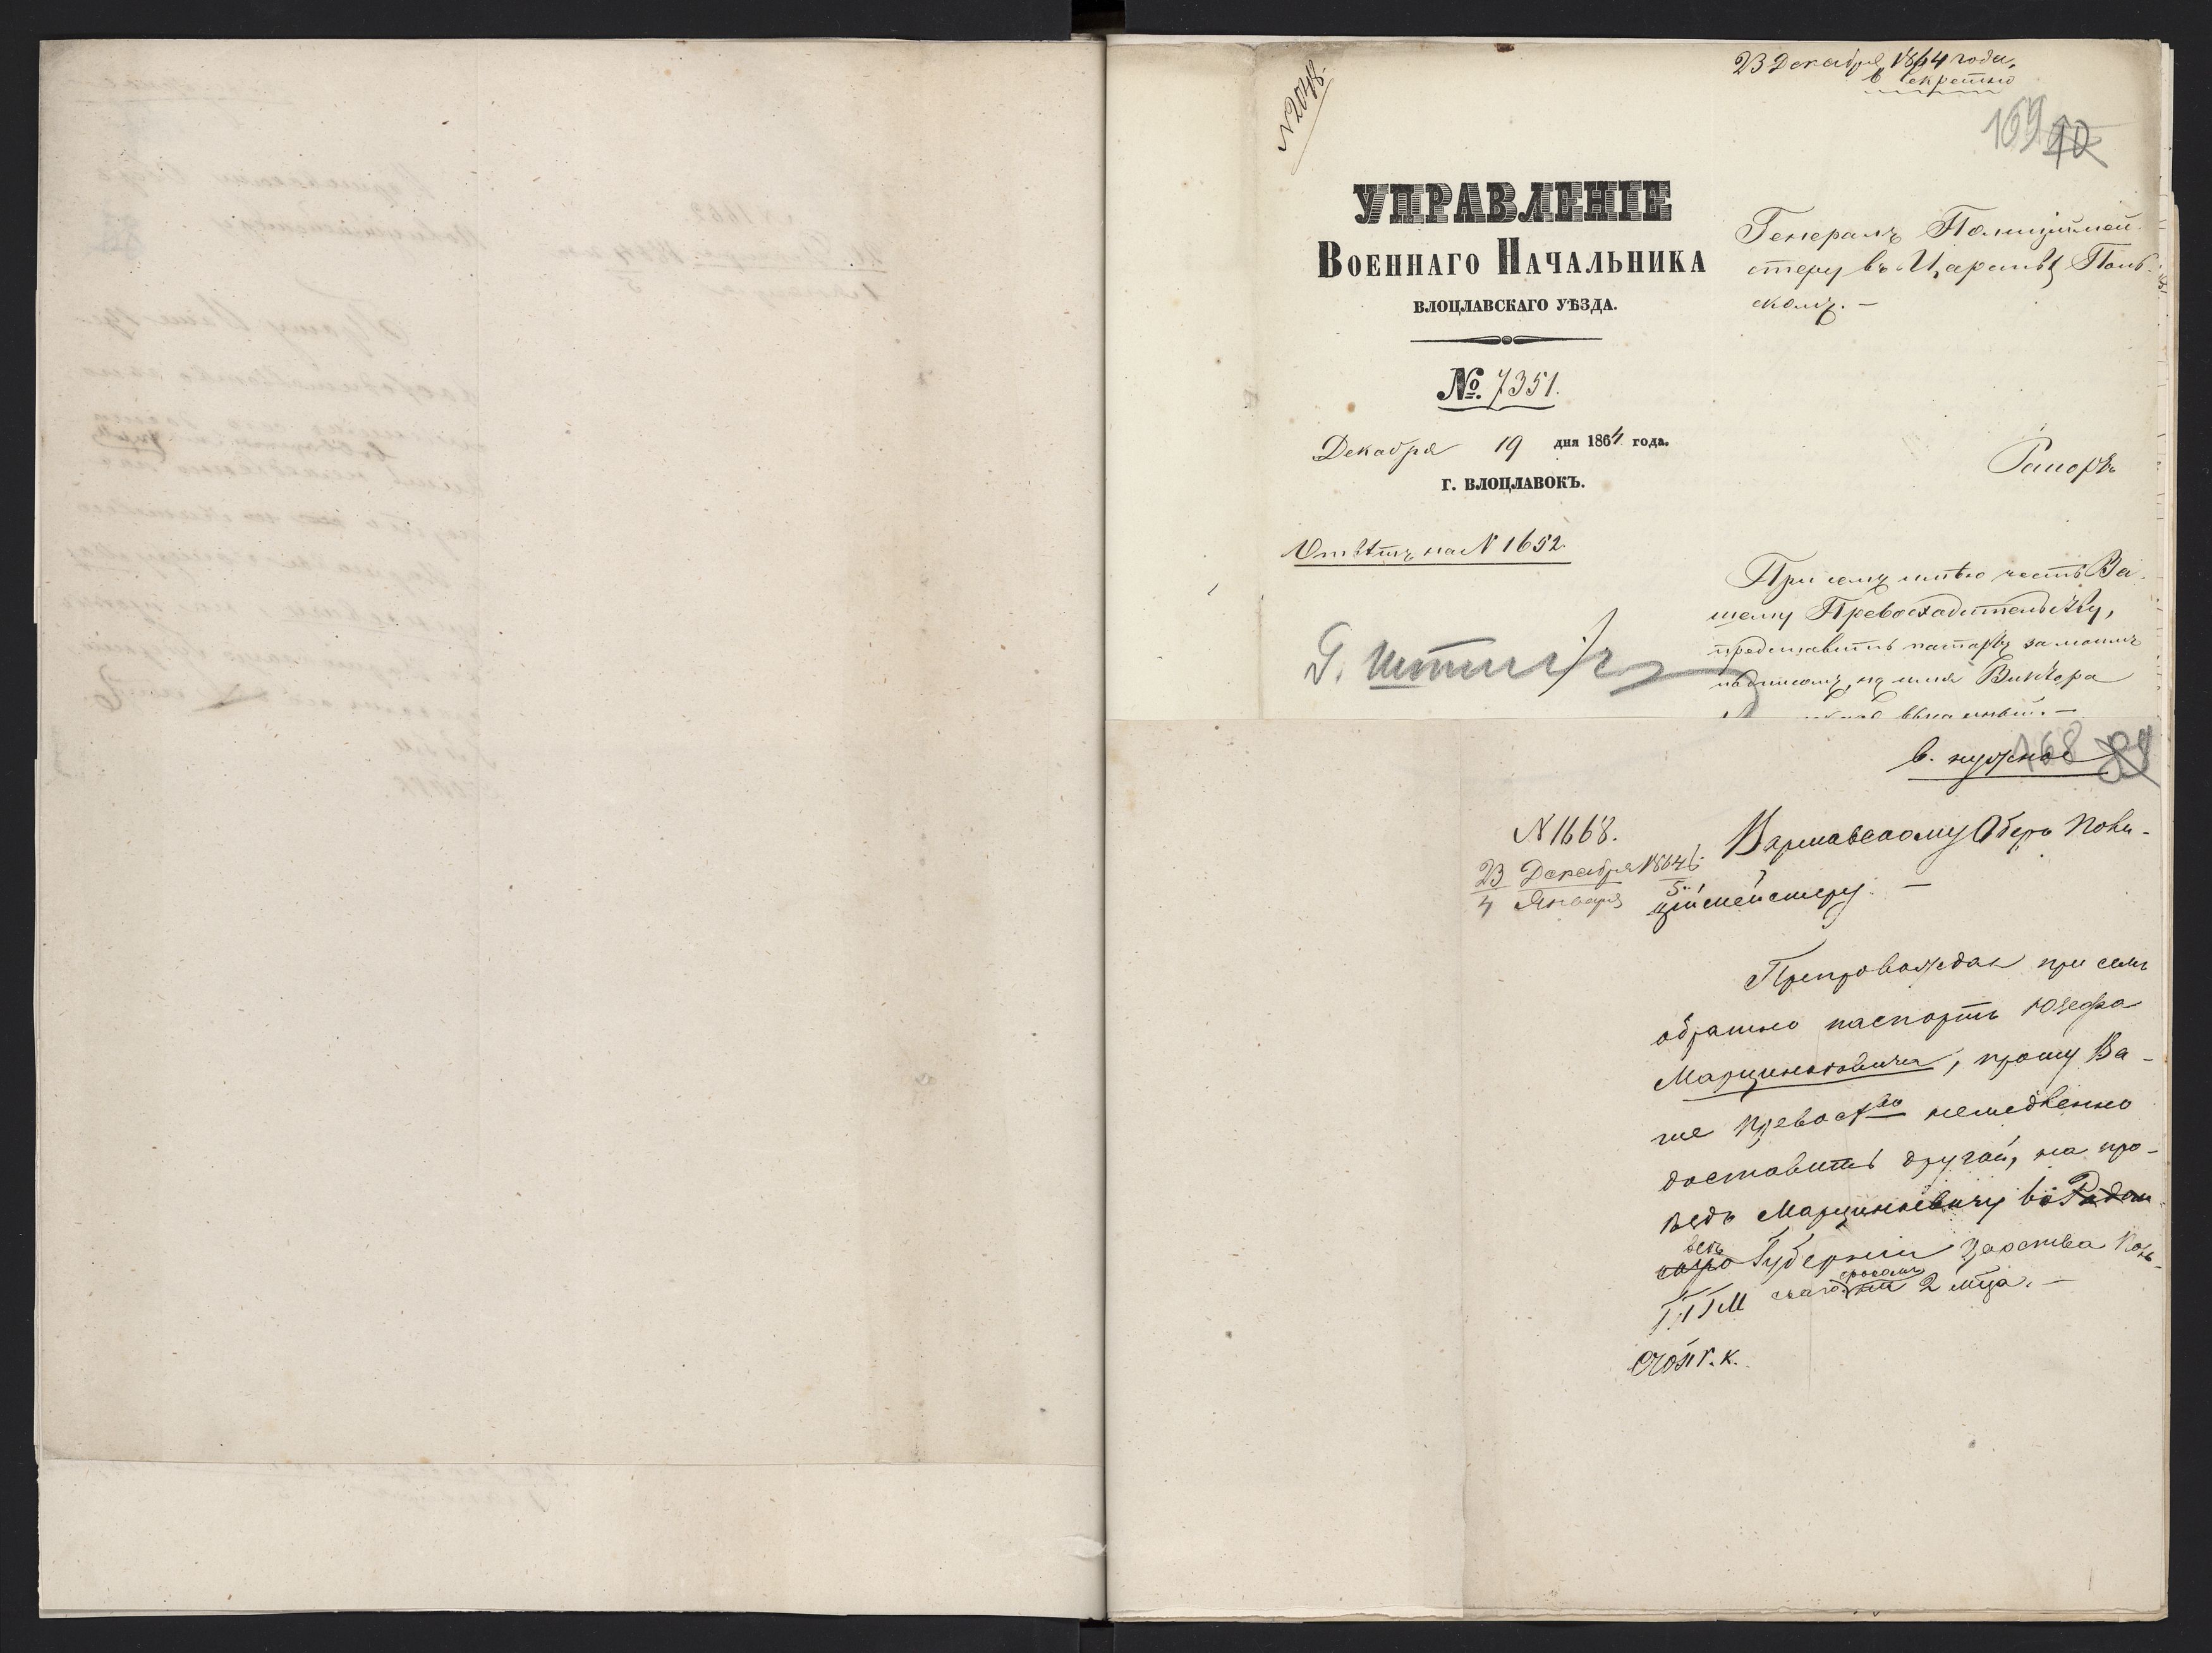 23 Декабря 1864 года.
Секретно
№ 2048.
169 90
УПРАВЛЕНІЕ
ВОЕННАГО НАЧАЛЬНИКА
ВЛОЦЛАВСКАГО УѢЗДА.
№. 7351.
Декабря 19 дня 1864 года.
Г. ВЛОЦЛАВОКЪ.
Отвѣтъ на № 1652.
Генералъ Полиціймей-
стеру въ Царствѣ Поль-
скомъ. —
Рапортъ
При семъ имѣю честь Ва-
шему Превосходительству,
представить паспортъ за моимъ
подписомъ, на имя Виктора
в. нужное
168 89
№ 1668.
23 Декабря 1864
4 Января 5
Варшавскому Оберъ Поли-
ціймейстеру. —
Препровождая при семъ
обратно паспортъ Юзефа
Марцинковича, прошу Ва-
ше Превосх-во немедленно
доставить другой, на про-
ѣздъ Марцинкевичу въ Радом-
Губерніи Царства Поль-
скаго срокомъ на 2 мѣца. —
Г.П.М.